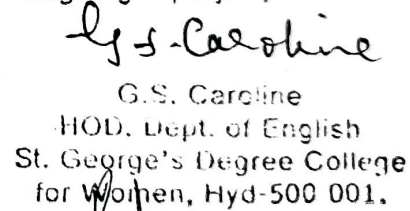 G.S. Caroline
G.S. Caroline
HOD. Dept. of English
St. George's Degree College
for Women, Hyd-500 001.